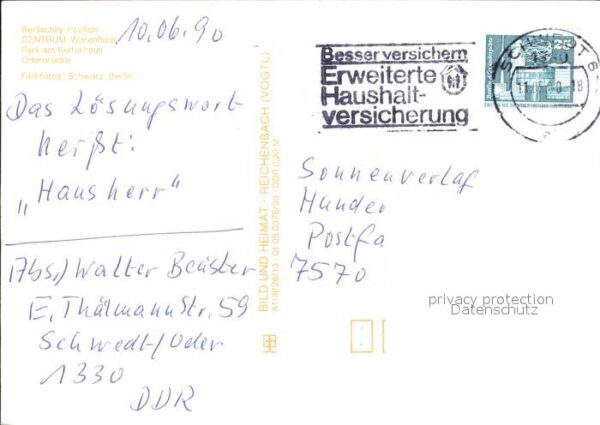 Berlischky-Pavillon
CENTRUM-Warenhaus
Park am Kulturhaus
Oderbrücke
Farbfotos: Schwarz, Berlin
10.06.90
Das Lösungswort
heißt:
„Hausherr"
Abs./ Walter Beuster
E. Thälmannstr. 59
Schwedt/Oder
1330
DDR
BILD UND HEIMAT · REICHENBACH (VOGTL)
Besser versichern
Erweiterte
Haushalt-
versicherung
SCHWEDT 6
1330
25
Sonnenverlag
Hunder
Postfa
7570
privacy protection
Datenschutz